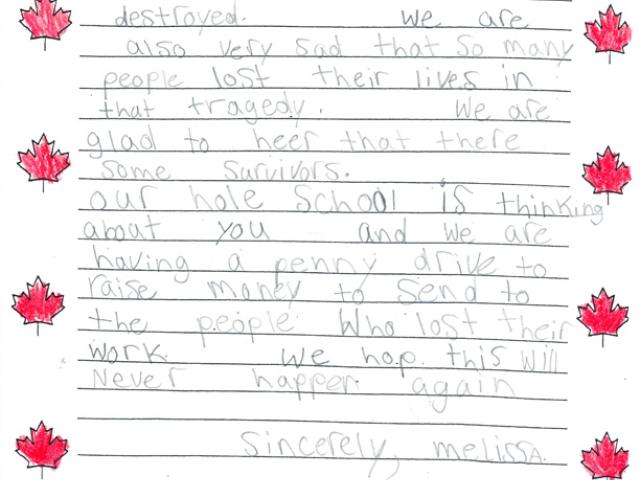 destroyed. We are
also very sad that so many
people lost their lives in
that tragedy. We are
glad to heer that there
some survivors.
our hole School is thinking
about you and we are
having a penny drive to
raise money to send to
the people Who lost their
work. We hop this will
Never happen again
Sincerely, melissa.